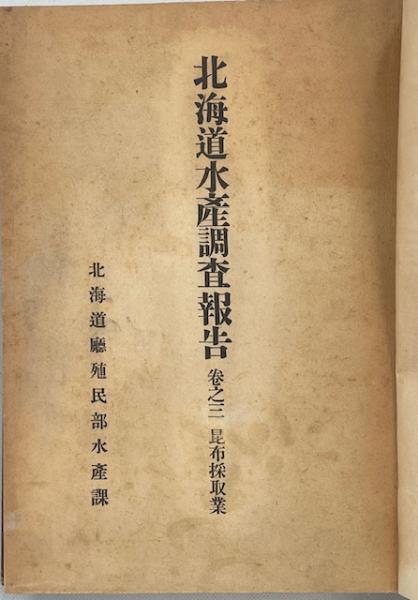 北海道水產調査報告 卷之三 昆布採取業
北海道廳殖民部水產課